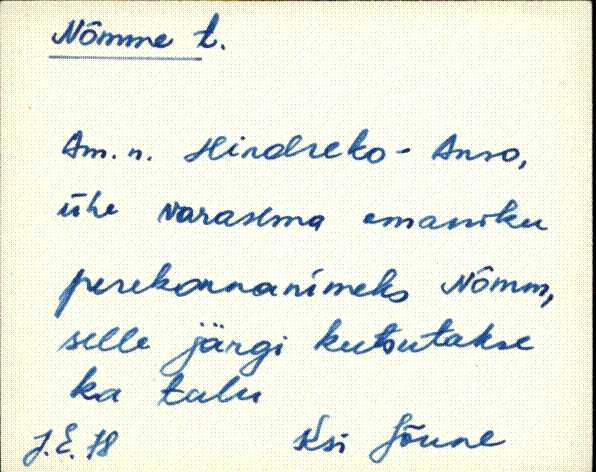 Nõmme t.
Am. n. Hindreko-Anso,
ühe varasema omaniku
perekonnanimeks Nõmm,
selle järgi kutsutakse
ka talu
J.E. 78 Ksi Jõune